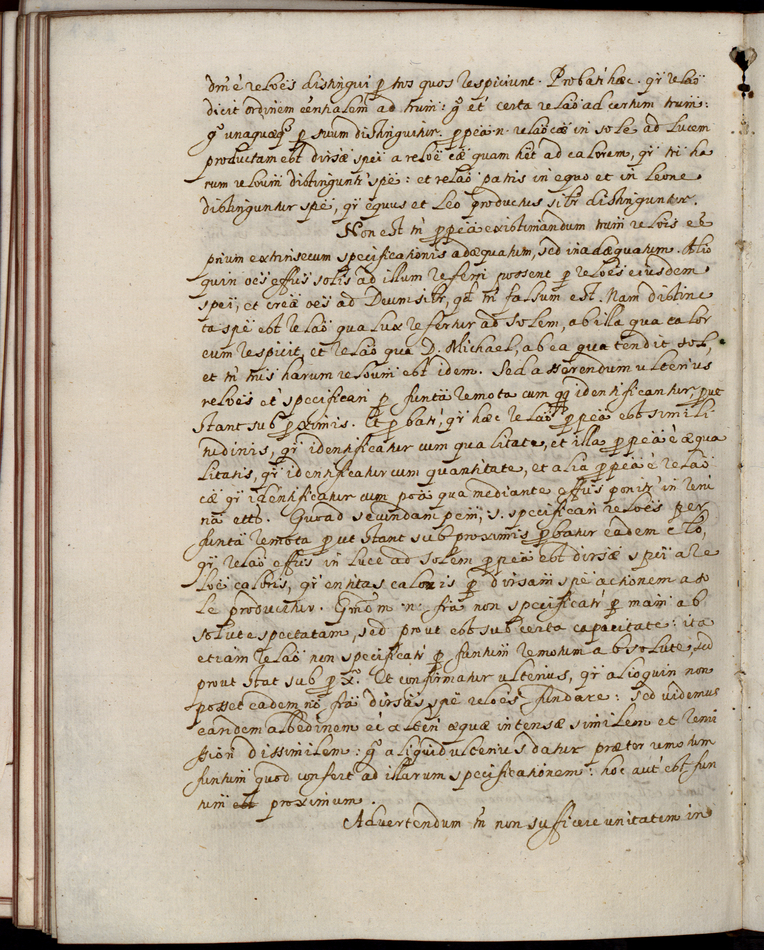 dm̃ ẽ relões distingui p̱ tr̃nos quos respiciunt. Probatr̃ hæc. qr̃ relaõ
dicit ordinem eẽntialem ad trm̃: gͦ et certa relaõ ad certum trm̃:
gͦ unaquæqꝫ p̱ suum distinguitur. p̱p̱eã n. relaõ cæ̃ in sole ad lucem
productam est dirsæ̃ spei a reloẽ cæ̃ quam hẽt ad calorem, qr̃ tr̃i ha
rum reloum̃ distingunt spẽ: et relaõ patis in equo et in leone
distinguntur spẽ, qr̃ equus et Leo productus silr̃ distinguntur.
Non est tñ p̱p̱eã existimandum trm̃ relois̃ eẽ
pñium extrinsecum specificationis adæquatum, sed inadæquatum. Alio
quin oẽs effũs solis ad illum referri possent p̱ reloẽs eiusdem
spei, et creã oẽs ad Deum silr̃, qd̃ tñ falsum est. Nam distinc
ta spẽ est relaõ qua lux refertur ad solem, ab illa qua calor
eum respicit, et relaõ qua D. Michael, ab ea qua tendit sol,
et tñ tr̃nus harum reloum̃ est idem. Sed asserendum ulterius
reloẽs et specificari p̱ funtã remota cum qꝫ identificantur, prut
stant sub p̱ximis. Et p̱batr̃, qr̃ hæc relaõ p̱p̱eã est simili
tudinis, qr̃ identificatur cum qualitate, et illa p̱p̱eã ẽ æqua
litatis, qr̃ identificatur cum quantitate, et alia p̱p̱eã ẽ relaõ
cæ̃ qr̃ identificatur cum poã qua mediante effũs ponitr̃ in reru
nã ettͣ. Quoad secundam pem̃, s. specificari reloẽs per
funtã remota p̱ut stant sub proximis p̱batur eadem
qr̃ relaõ effũs in luce ad solem p̱p̱eã est dirsæ̃ spei a re
loẽ caloris, qr̃ entitas caloris p̱ dirsam̃ spẽ actionem a so
le producitur. Qm̃om̃ n. frã non specificatr̃ p̱ mam̃ ab
solute spectatam, sed prout est sub certa capacitate: ita
etiam relaõ non specificatr̃ p̱ funtum̃ remotum absolute, sed
prout stat sub p̱x̃. Et confirmatur ulterius, qr̃ alioquin non
posset eadem nõ frã dirsas̃ spẽ reloẽs fundare: Sed videmus
eandem albedinem eẽ alteri æquæ intensæ similem et remi
ssiori dissimilem: gͦ aliquid ulterius datur præter remotum
funtum̃ quod confert ad illarum specificationem: hoc aut̃ est fun
tum̃ proximum.
Advertendum tñ non sufficere unitatem in